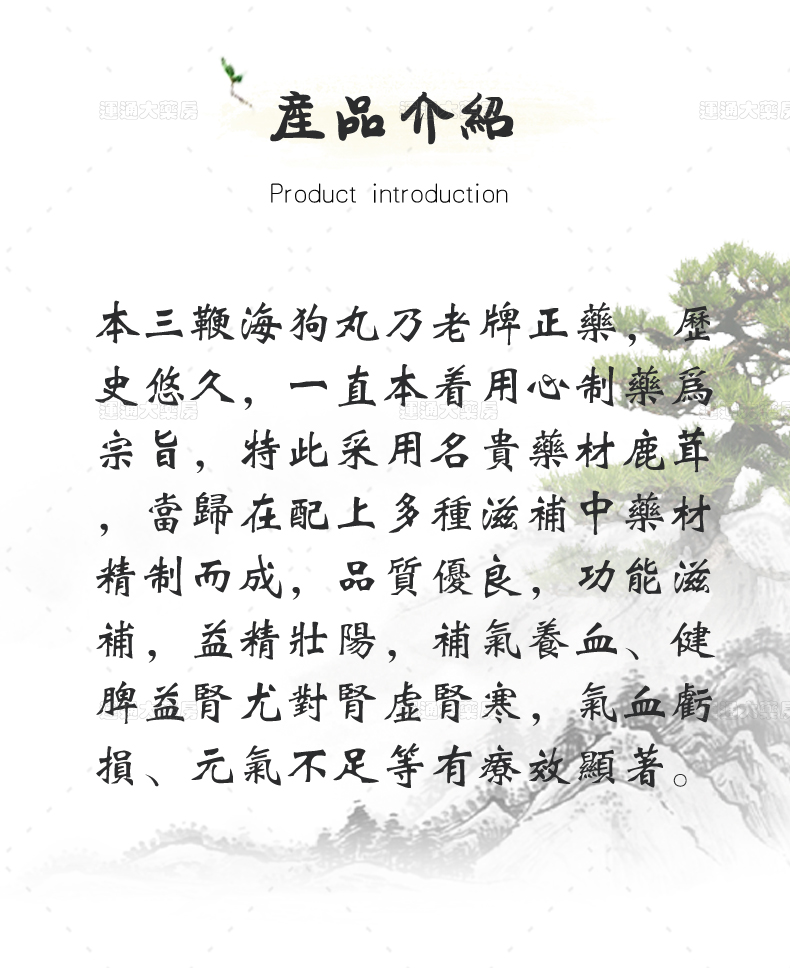 產品介紹
Product introduction
本三鞭海狗丸乃老牌正藥，歷
史悠久，一直本着用心制藥爲
宗旨，特此采用名貴藥材鹿茸
，當歸在配上多種滋補中藥材
精制而成，品質優良，功能滋
補，益精壯陽，補氣養血、健
脾益腎尤對腎虛腎寒，氣血虧
損、元氣不足等有療效顯著。
運通大藥房
運通大藥房
運通大藥房
運通大藥房
運通大藥房
運通大藥房
運通大藥房
運通大藥房
運通大藥房